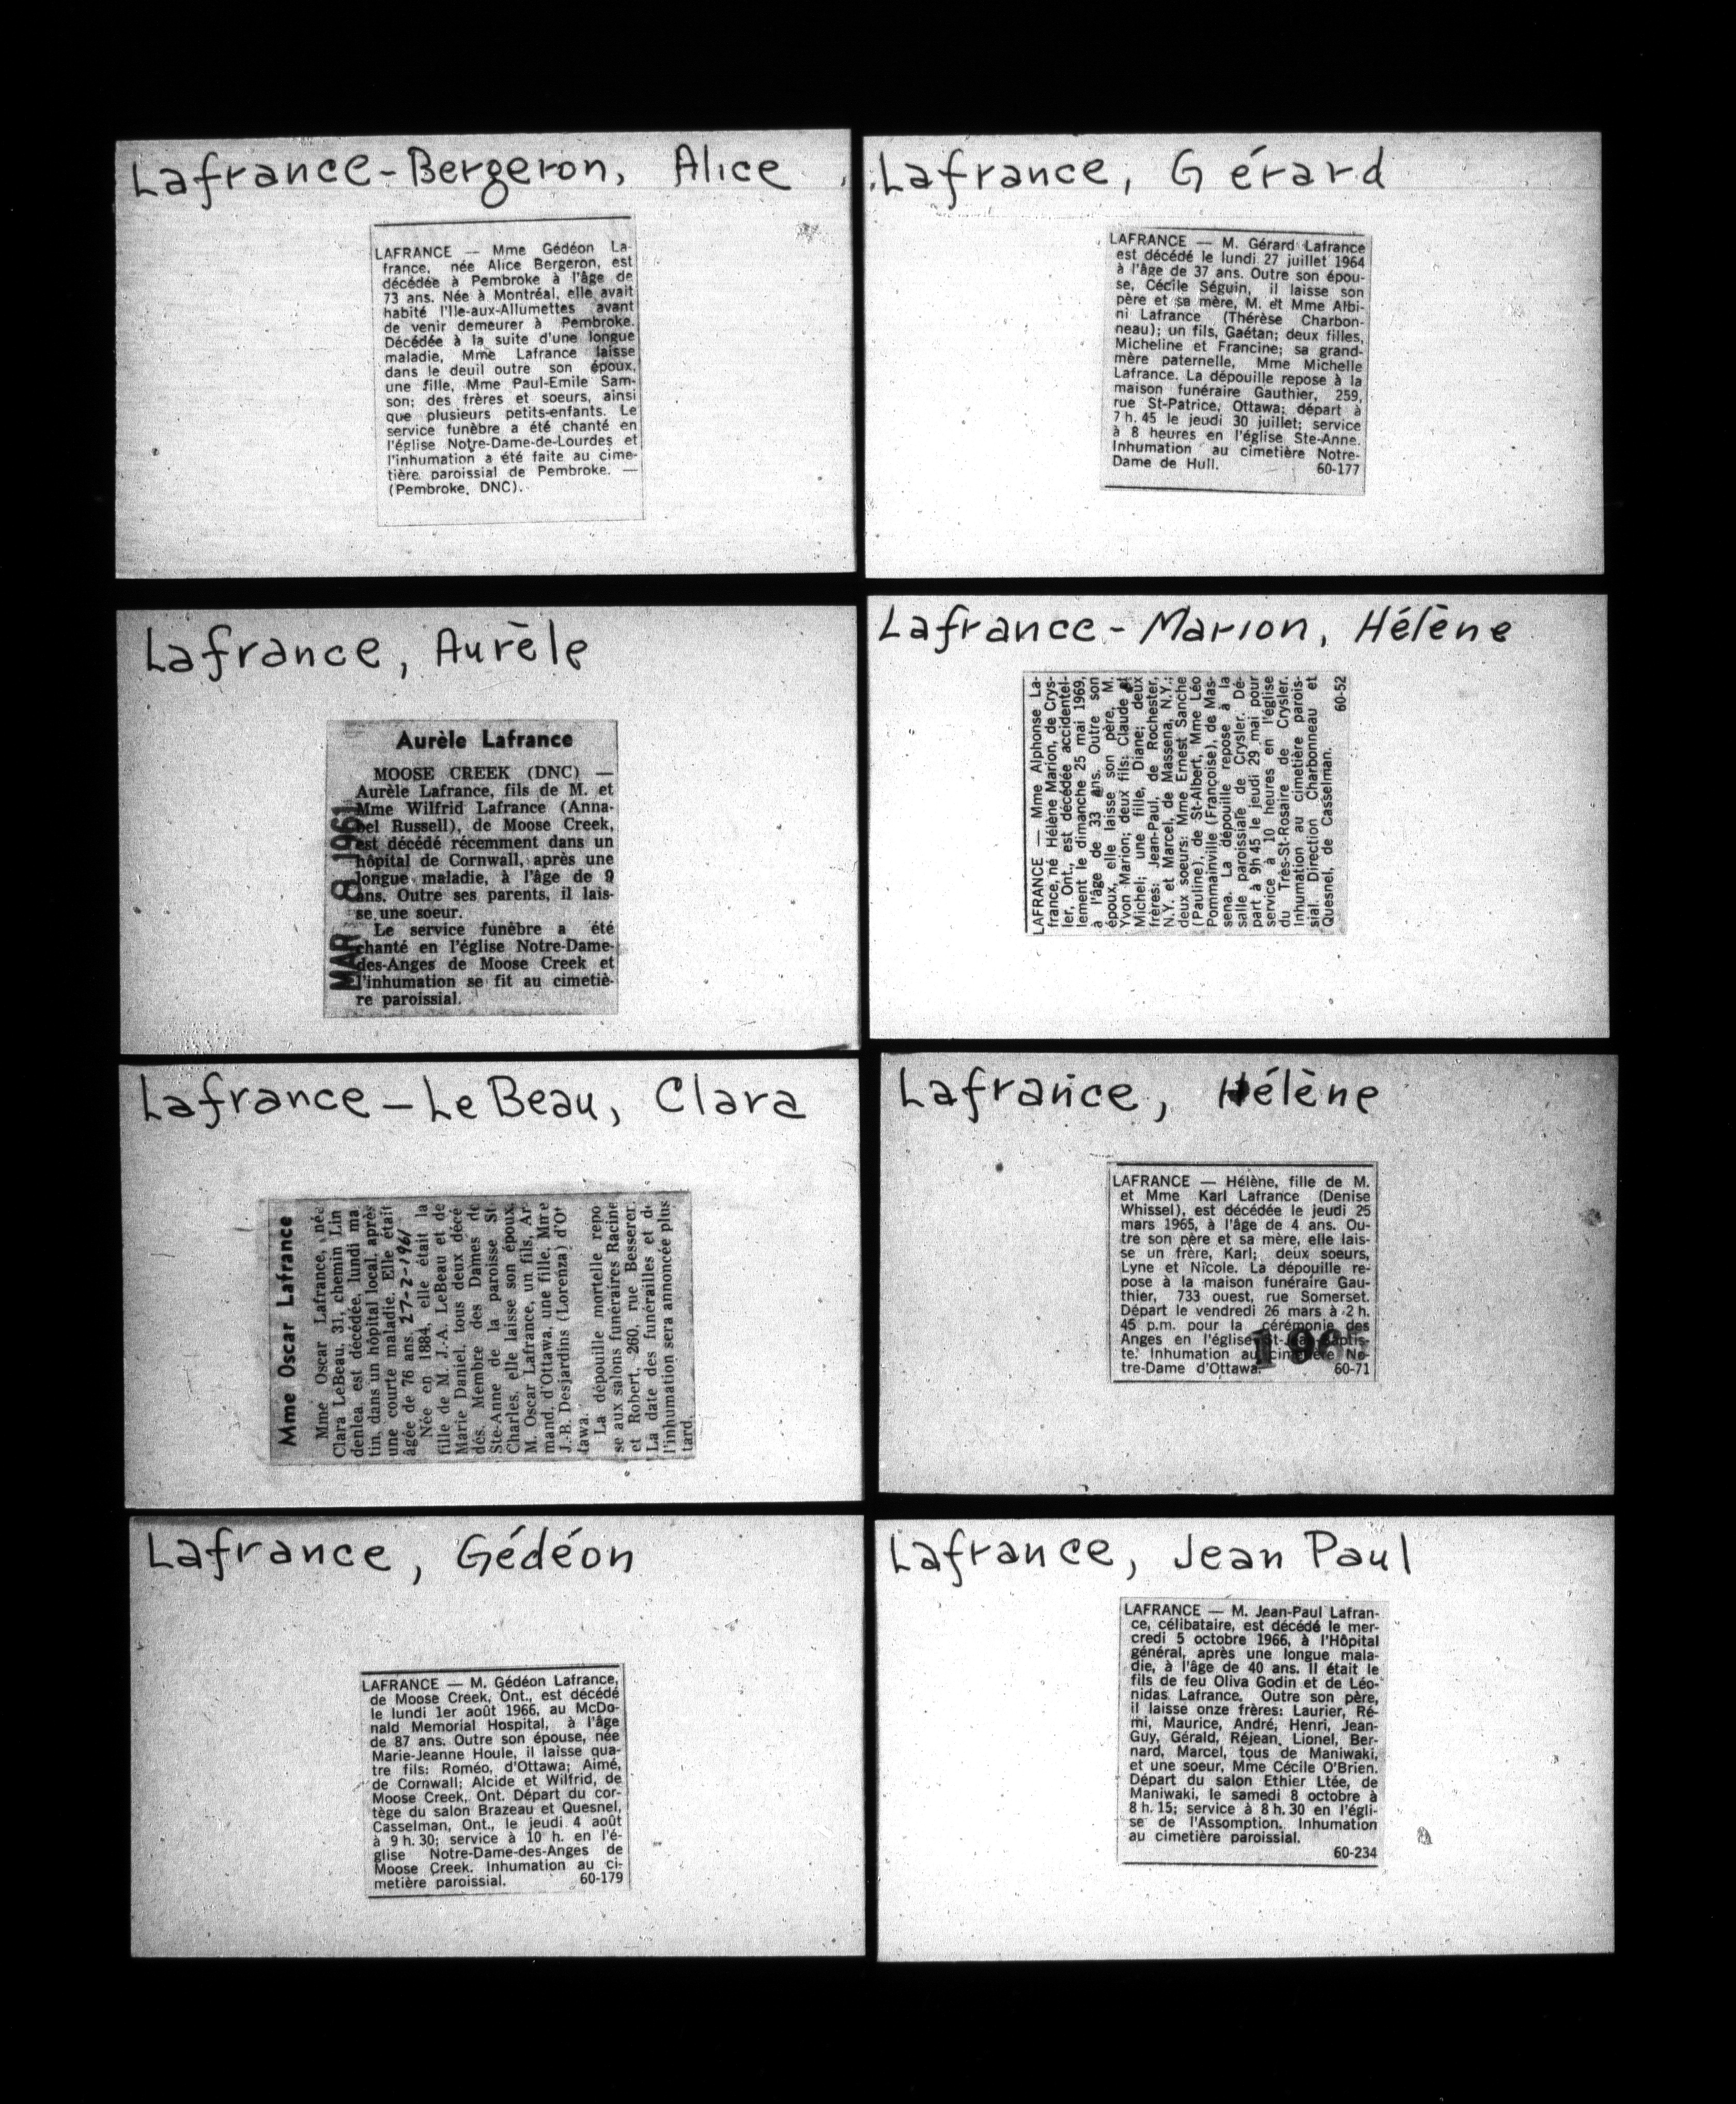 Lafrance-Bergeron, Alice
LAFRANCE — Mme Gédéon La-
france, née Alice Bergeron, est
décédée à Pembroke à l'âge de
73 ans. Née à Montréal, elle avait
habité l'Ile-aux-Allumettes avant
de venir demeurer à Pembroke.
Décédée à la suite d'une longue
maladie, Mme Lafrance laisse
dans le deuil outre son époux,
une fille, Mme Paul-Emile Sam-
son; des frères et soeurs, ainsi
que plusieurs petits-enfants. Le
service funèbre a été chanté en
l'église Notre-Dame-de-Lourdes et
l'inhumation a été faite au cime-
tière paroissial de Pembroke. —
(Pembroke, DNC).
Lafrance, Gérard
LAFRANCE — M. Gérard Lafrance
est décédé le lundi 27 juillet 1964
à l'âge de 37 ans. Outre son épou-
se, Cécile Séguin, il laisse son
père et sa mère, M. et Mme Albi-
ni Lafrance (Thérèse Charbon-
neau); un fils, Gaétan; deux filles,
Micheline et Francine; sa grand-
mère paternelle, Mme Michelle
Lafrance. La dépouille repose à la
maison funéraire Gauthier, 259,
rue St-Patrice, Ottawa; départ à
7 h. 45 le jeudi 30 juillet; service
à 8 heures en l'église Ste-Anne.
Inhumation au cimetière Notre-
Dame de Hull. 60-177
Lafrance, Aurèle
Aurèle Lafrance
MOOSE CREEK (DNC) —
Aurèle Lafrance, fils de M. et
Mme Wilfrid Lafrance (Anna-
bel Russell), de Moose Creek,
est décédé récemment dans un
hôpital de Cornwall, après une
longue maladie, à l'âge de 9
ans. Outre ses parents, il lais-
se une soeur.
Le service funèbre a été
chanté en l'église Notre-Dame-
des-Anges de Moose Creek et
l'inhumation se fit au cimetiè-
re paroissial.
MAR 8 1961
Lafrance-Marion, Hélène
LAFRANCE — Mme Alphonse La-
france, né Hélène Marion, de Crys-
ler, Ont., est décédée accidentel-
lement le dimanche 25 mai 1969,
à l'âge de 33 ans. Outre son
époux, elle laisse son père, M.
Yvon Marion; deux fils: Claude et
Michel; une fille, Diane; deux
frères: Jean-Paul, de Rochester,
N.Y. et Marcel, de Massena, N.Y.;
deux soeurs: Mme Ernest Sanche
(Pauline), de St-Albert, Mme Léo
Pommainville (Françoise), de Mas-
sena. La dépouille repose à la
salle paroissiale de Crysler. Dé-
part à 9h 45 le jeudi 29 mai pour
service à 10 heures en l'église
du Très-St-Rosaire de Crysler.
Inhumation au cimetière parois-
sial. Direction Charbonneau et
Quesnel, de Casselman. 60-52
Lafrance-LeBeau, Clara
Mme Oscar Lafrance
Mme Oscar Lafrance, née
Clara LeBeau, 31, chemin Lin
denlea, est décédée, lundi ma
tin, dans un hôpital local, après
une courte maladie. Elle était
âgée de 76 ans. 27-2-1961
Née en 1884, elle était la
fille de M. J.-A. LeBeau et de
Marie Daniel, tous deux décé
dés. Membre des Dames de
Ste-Anne de la paroisse St-
Charles, elle laisse son époux,
M. Oscar Lafrance, un fils, Ar-
mand, d'Ottawa, une fille, Mme
J.-B. Desjardins (Lorenza) d'Ot
tawa.
La dépouille mortelle repo
se aux salons funéraires Racine
et Robert, 260, rue Besserer.
La date des funérailles et de
l'inhumation sera annoncée plus
tard.
Lafrance, Hélène
LAFRANCE — Hélène, fille de M.
et Mme Karl Lafrance (Denise
Whissel), est décédée le jeudi 25
mars 1965, à l'âge de 4 ans. Ou-
tre son père et sa mère, elle lais-
se un frère, Karl; deux soeurs,
Lyne et Nicole. La dépouille re-
pose à la maison funéraire Gau-
thier, 733 ouest, rue Somerset.
Départ le vendredi 26 mars à 2 h.
45 p.m. pour la cérémonie des
Anges en l'église St-Jean-Baptis-
te. Inhumation au cimetière No-
tre-Dame d'Ottawa. 60-71
Lafrance, Gédéon
LAFRANCE — M. Gédéon Lafrance,
de Moose Creek, Ont., est décédé
le lundi 1er août 1966, au McDo-
nald Memorial Hospital, à l'âge
de 87 ans. Outre son épouse, née
Marie-Jeanne Houle, il laisse qua-
tre fils: Roméo, d'Ottawa; Aimé,
de Cornwall; Alcide et Wilfrid, de
Moose Creek, Ont. Départ du cor-
tège du salon Brazeau et Quesnel,
Casselman, Ont., le jeudi 4 août
à 9 h. 30; service à 10 h. en l'é-
glise Notre-Dame-des-Anges de
Moose Creek. Inhumation au ci-
metière paroissial. 60-179
Lafrance, Jean Paul
LAFRANCE — M. Jean-Paul Lafran-
ce, célibataire, est décédé le mer-
credi 5 octobre 1966, à l'Hôpital
général, après une longue mala-
die, à l'âge de 40 ans. Il était le
fils de feu Oliva Godin et de Léo-
nidas Lafrance. Outre son père,
il laisse onze frères: Laurier, Ré-
mi, Maurice, André, Henri, Jean-
Guy, Gérald, Réjean, Lionel, Ber-
nard, Marcel, tous de Maniwaki,
et une soeur, Mme Cécile O'Brien.
Départ du salon Ethier Ltée, de
Maniwaki, le samedi 8 octobre à
8 h. 15; service à 8 h. 30 en l'égli-
se de l'Assomption. Inhumation
au cimetière paroissial.
60-234